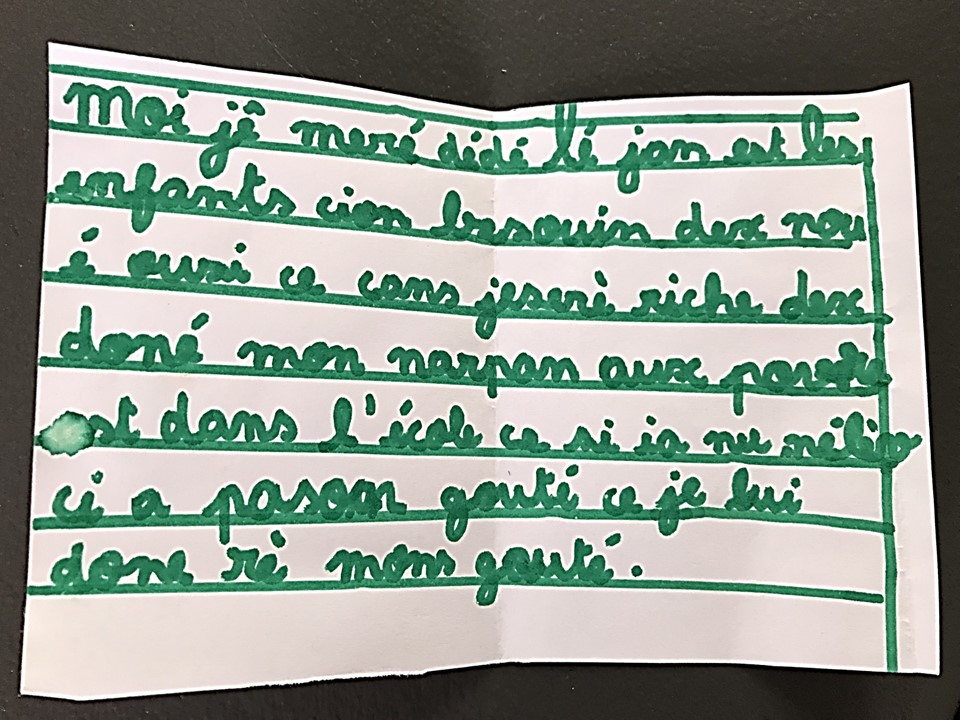 Moi jê meré dédé lé jan est les
enfants cion besouin dex nou
é ausi ce cans jeserè riche dex
doné mon narpan aux povre
est dans l'école ce si ia nu nélève
ci a pason gouté ce je lui
done rè mons gouté.